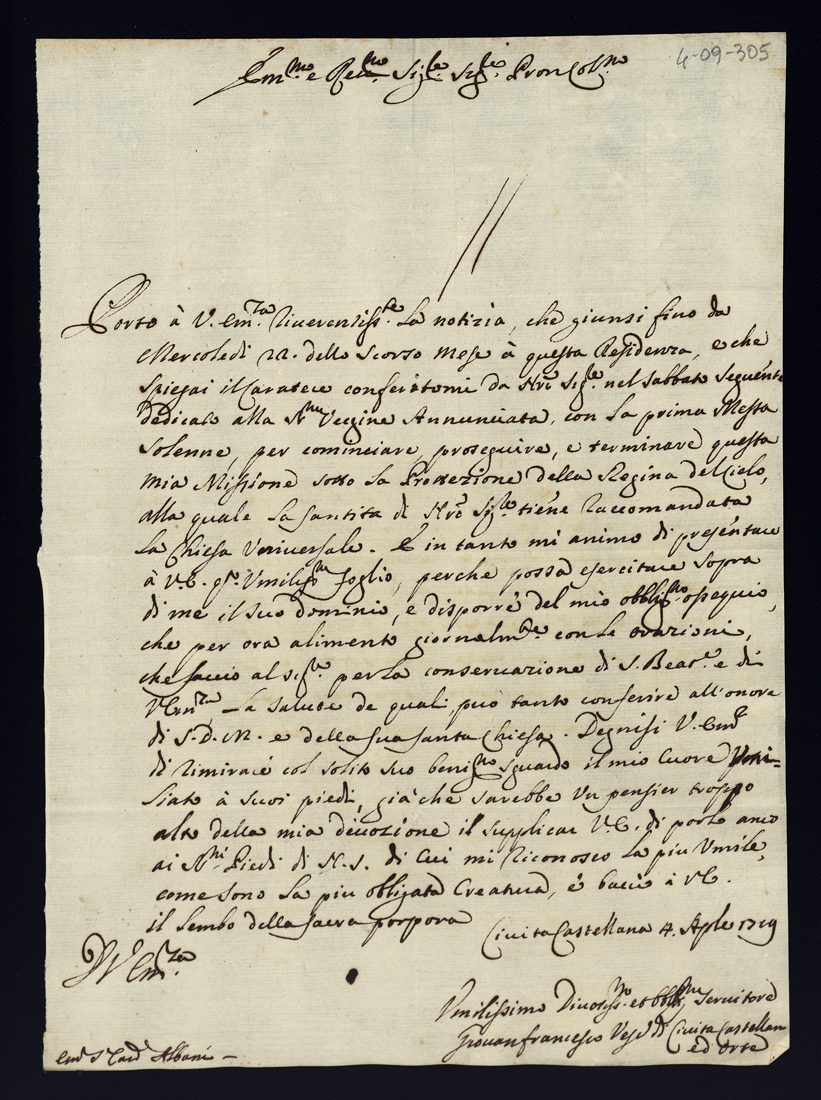 4-09-305
Em.mo e Rev.mo Sig.re Sig.re Pron Col.mo
Porto à V. Em.za Riverentiss.te la notizia, che giunsi fino da
Mercoledi 22. dello scorso Mese à questa Residenza, e che
spiegai il Carattere conferitomi da Nr̃o Sig.re nel Sabbato seguente
dedicato alla S.ma Vergine Annunciata, con la prima Messa
solenne, per cominciare, proseguire, e terminare questa
mia Missione sotto la Protezione della Regina del Cielo,
alla quale la santità di Nr̃o Sig.re tiene Raccomandata
la Chiesa Universale. E in tanto mi animo di presentare
à V.E. q.to Umiliss.mo foglio, perche possa esercitare sopra
di me il suo dominio, e disporre del mio obblig.mo ossequio,
che per ora alimento giornalm.te con le orazioni,
che faccio al Sig.re per la conservazione di S. Beat.e e di
V. Em.za, la salute de quali può tanto conferire all'onore
di S.D.M. e della sua santa Chiesa. Degnisi V. Em.za
di rimirare col solito suo benig.no sguardo il mio Cuore Umi-
liato à suoi piedi, già che sarebbe un pensier troppo
alto della mia divozione il supplicar V.E. di porlo anco
ai S.mi Piedi di N.S. di cui mi riconosco la piu Umile,
come sono la piu obligata Creatura, è bacio à V.E.
il lembo della sacra porpora
Civita Castellana 4. Aple 1719
D V. Em.za
Umilissimo Divotiss.mo et Obblig.mo Servitore
Giovan francesco Vesc.o di Civita Castellan
ed Orte
Em.o S.r Card. Albani